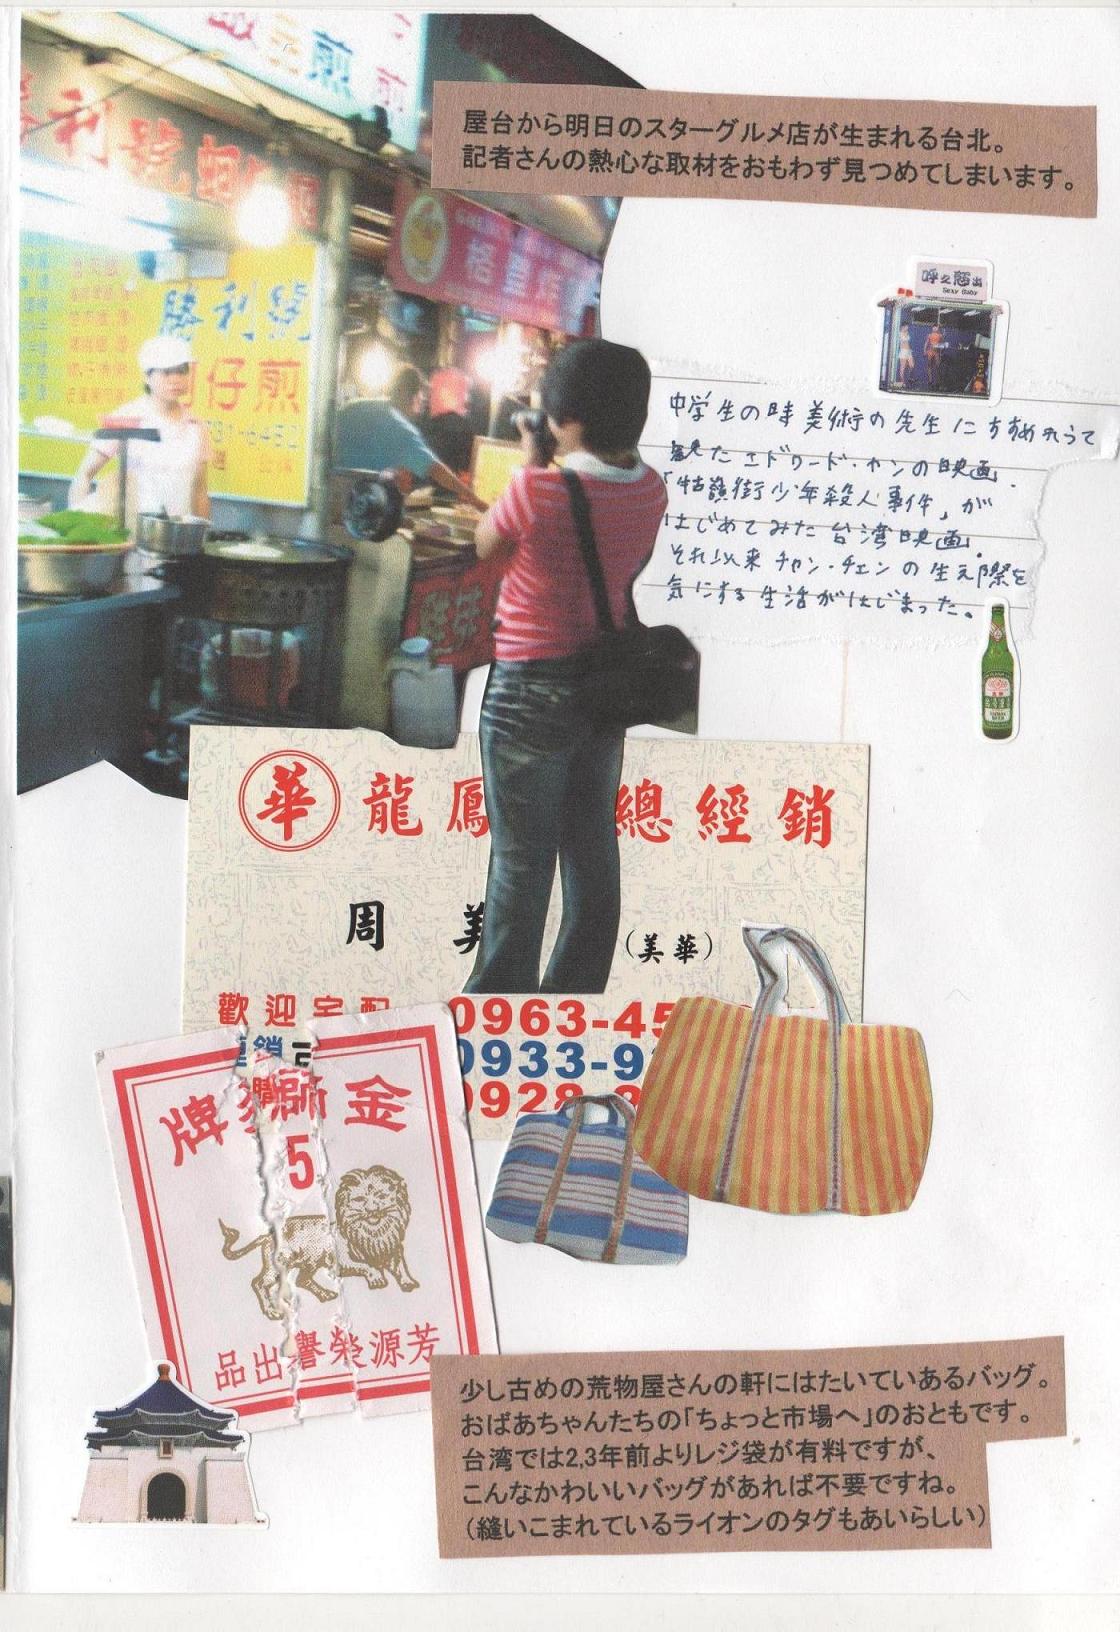 屋台から明日のスターグルメ店が生まれる台北。
記者さんの熱心な取材をおもわず見つめてしまいます。
煎
勝利號
蚵仔煎
呼之慾出
Sexy Baby
中学生の時美術の先生にすすめれらて
観たエドワード・ヤンの映画.
「牯嶺街少年殺人事件」が
はじめてみた台湾映画.
それ以来チャン・チェンの生え際を
気にする生活がはじまった。
華 龍鳳 總經銷
周美
(美華)
歡迎宅配
0963-45
0933-9
0928-
金獅牌
5
芳源榮譽出品
少し古めの荒物屋さんの軒にはたいていあるバッグ。
おばあちゃんたちの「ちょっと市場へ」のおともです。
台湾では2,3年前よりレジ袋が有料ですが、
こんなかわいいバッグがあれば不要ですね。
(縫いこまれているライオンのタグもあいらしい)